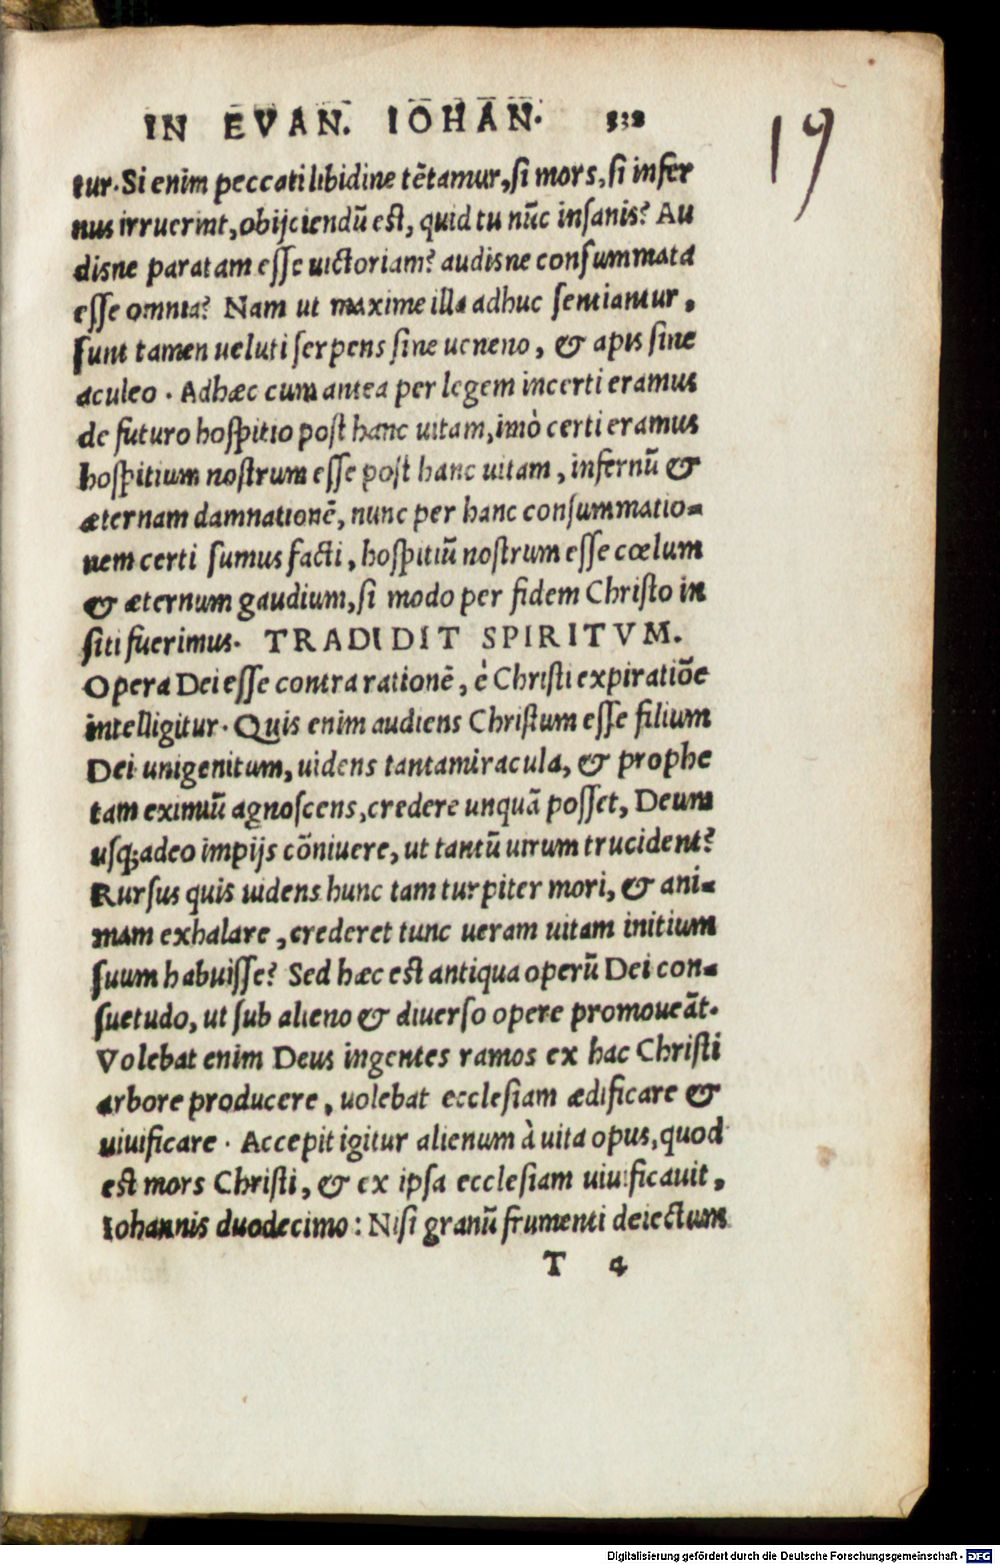 IN EVAN. IOHAN. 332
19
tur. Si enim peccati libidine tētamur, ſi mors, ſi infer
nus irruerint, obijciendū eſt, quid tu nūc inſanis? Au
disne paratam eſſe uictoriam? audisne conſummata
eſſe omnia? Nam ut maxime illa adhuc ſentiantur,
ſunt tamen ueluti ſerpens ſine ueneno, & apis ſine
aculeo. Adhæc cum antea per legem incerti eramus
de futuro hoſpitio poſt hanc uitam, imò certi eramus
hoſpitium noſtrum eſſe poſt hanc uitam, infernū &
æternam damnationē, nunc per hanc conſummatio-
nem certi ſumus facti, hoſpitiū noſtrum eſſe cœlum
& æternum gaudium, ſi modo per fidem Chriſto in
ſiti fuerimus. TRADIDIT SPIRITVM.
Opera Dei eſſe contra rationē, è Chriſti expiratiōe
intelligitur. Quis enim audiens Chriſtum eſſe filium
Dei unigenitum, uidens tanta miracula, & prophe
tam eximiū agnoſcens, credere unquā poſſet, Deum
uſq; adeo impijs cōniuere, ut tantū uirum trucident?
Rurſus quis uidens hunc tam turpiter mori, & ani-
mam exhalare, crederet tunc ueram uitam initium
ſuum habuiſſe? Sed hæc eſt antiqua operū Dei con-
ſuetudo, ut ſub alieno & diuerſo opere promoueāt.
Volebat enim Deus ingentes ramos ex hac Chriſti
arbore producere, uolebat eccleſiam ædificare &
uiuificare. Accepit igitur alienum à uita opus, quod
eſt mors Chriſti, & ex ipſa eccleſiam uiuificauit,
Iohannis duodecimo: Niſi granū frumenti deiectum
T 4
Digitalisierung gefördert durch die Deutsche Forschungsgemeinschaft - DFG